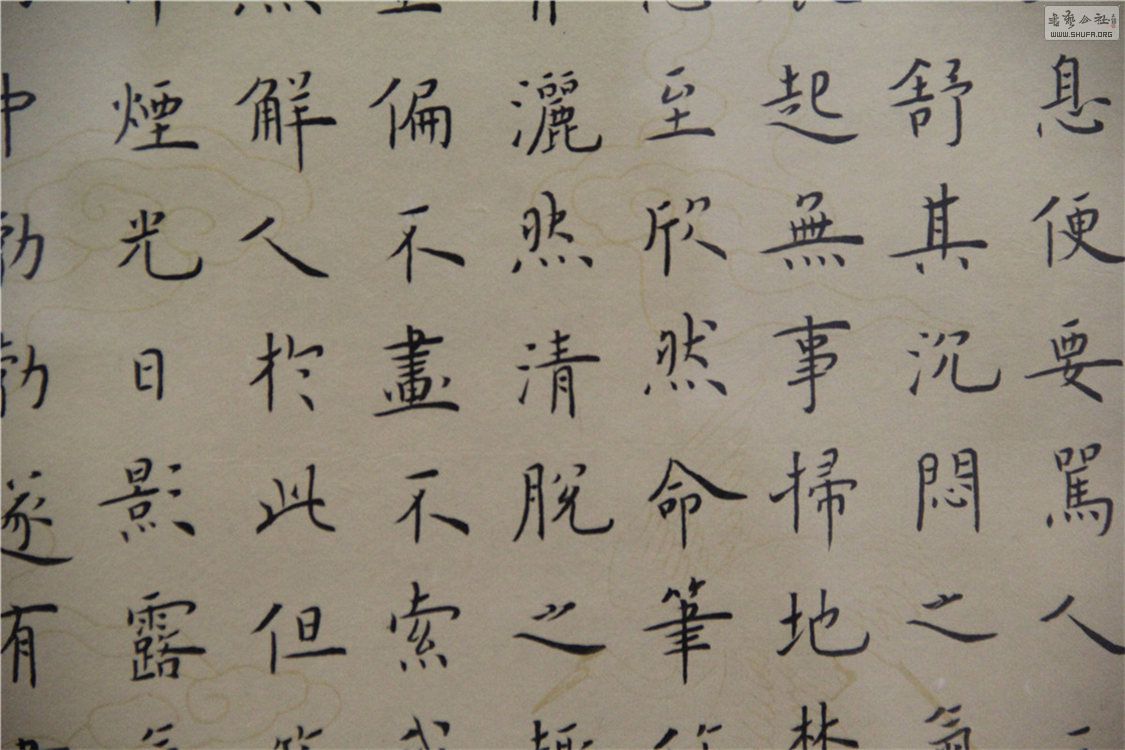 息便要罵人
舒其沉悶之氣
起無事掃地
至欣然命筆
灑然清脫之
偏不畫不索
解人於此但
煙光日影露
中勃勃遂有
书艺公社
WWW.SHUFA.ORG